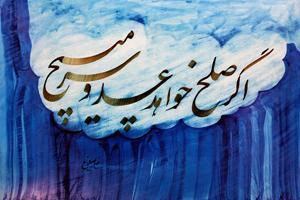 اگر صلح خواهد عدو سر مپیچ